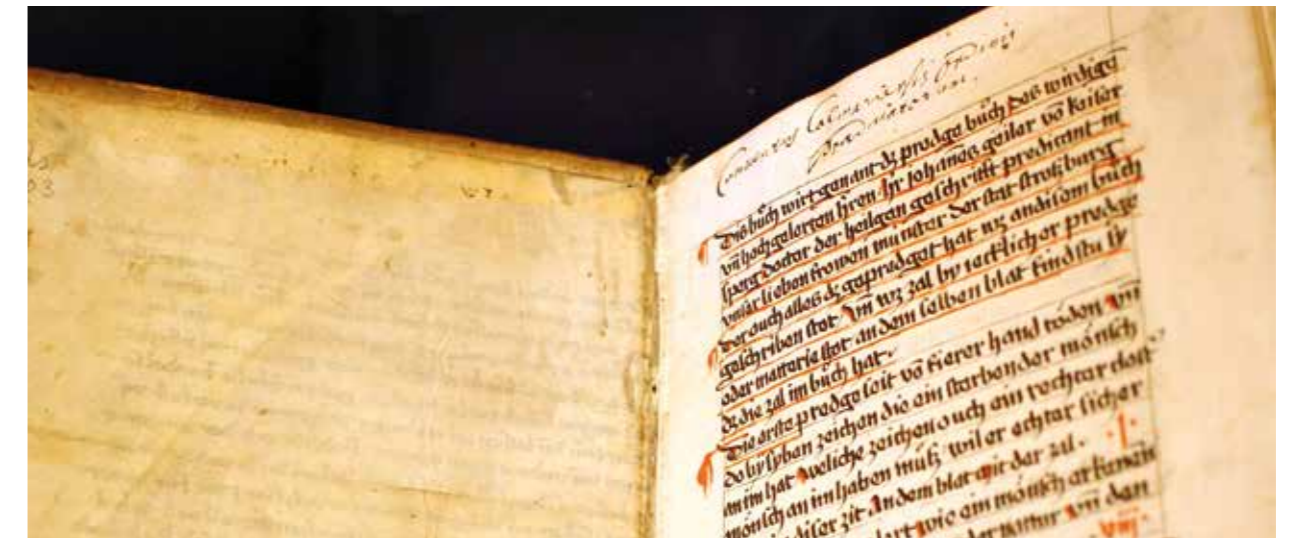 Conventus Colmariensis Ordinis
Prædicatorum.
Dis bůch wirt genant dz predge bůch des wirdigē
vn̄ hochgelerten h̄ren h̄r johanes geiler vō keiser
sperg doctor der heilgen geschrifft predicant in
vnser lieben frowen münster der stat strosburg
der ouch alles dz gepredget hat wz an disem bůch
geschriben stot vn̄ wz zal by ieclicher predge
oder matterie stot an dem selben blat findstu sÿ
dz die zal im bůch hat.
Die erste predge seit vō fierer hand töden vn̄
do by syben zeichen die ein sterbender mönsch
an im hat weliche zeichen ouch ein rechter
mönsch an im haben můsz wil er echter sicher
diser zit An dem blat mit der zal .1.
wie ein mönsch erkenen
der natur vn̄ den
viij.